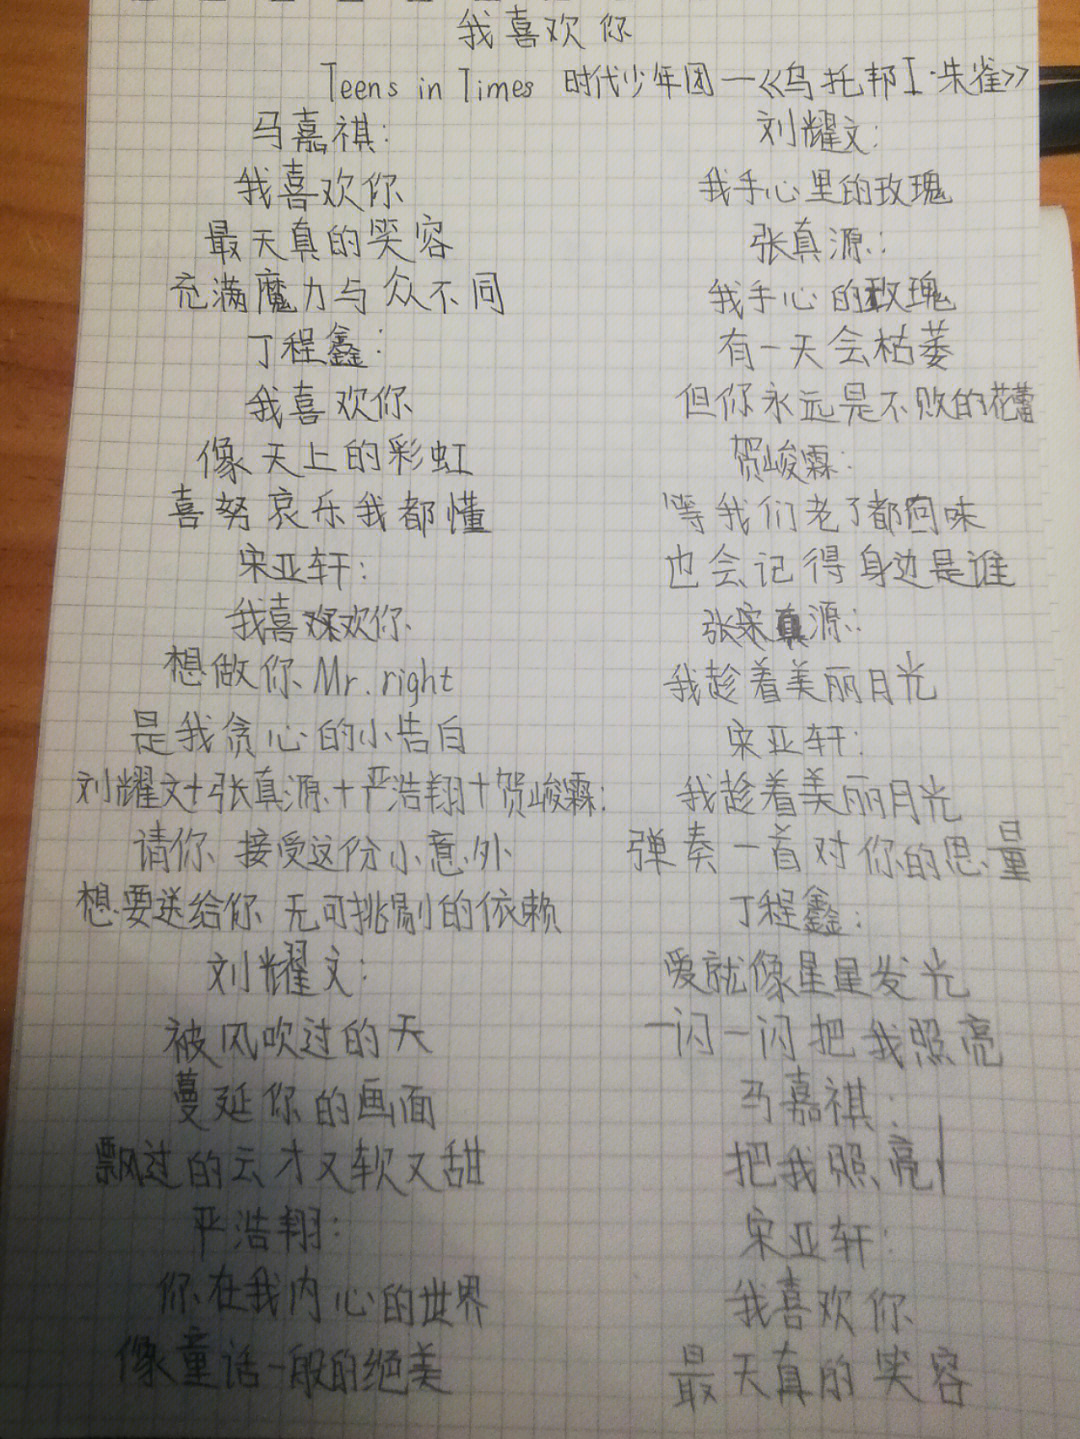 我喜欢你
Teens in Times 时代少年团—《乌托邦I·朱雀》
马嘉祺:
我喜欢你
最天真的笑容
充满魔力与众不同
丁程鑫:
我喜欢你
像天上的彩虹
喜努哀乐我都懂
宋亚轩:
我喜欢你
想做你Mr.right
是我贪心的小告白
刘耀文+张真源+严浩翔+贺峻霖:
请你接受这份小意外
想要送给你无可挑剔的依赖
刘耀文:
被风吹过的天
蔓延你的画面
飘过的云才又软又甜
严浩翔:
你在我内心的世界
像童话一般的绝美
刘耀文:
我手心里的玫瑰
张真源:
我手心的玫瑰
有一天会枯萎
但你永远是不败的花蕾
贺峻霖:
等我们老了都回味
也会记得身边是谁
张真源:
我趁着美丽月光
宋亚轩:
我趁着美丽月光
弹奏一首对你的思量
丁程鑫:
爱就像星星发光
一闪一闪把我照亮
马嘉祺:
把我照亮
宋亚轩:
我喜欢你
最天真的笑容